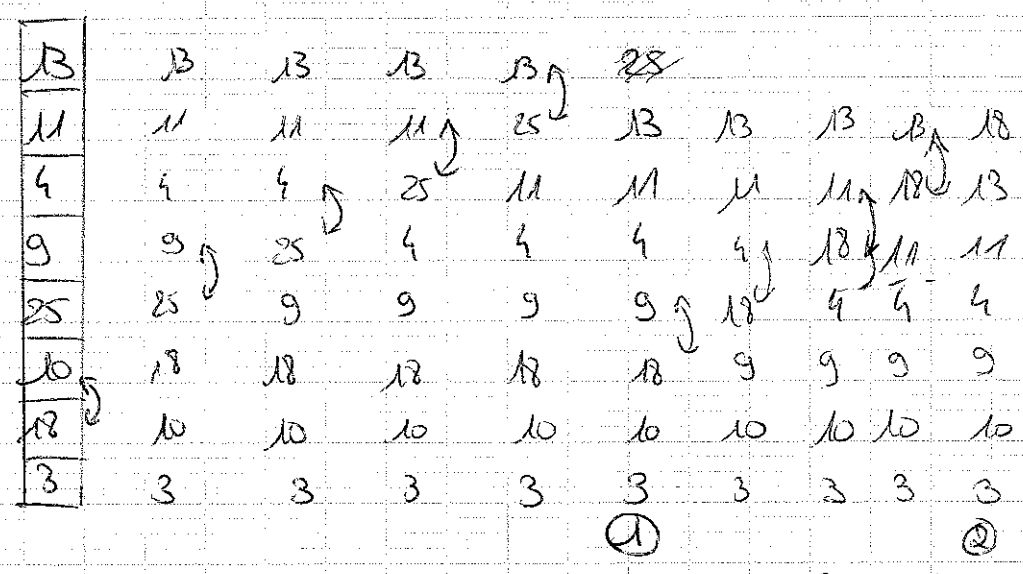 13 13 13 13 13 25
11 11 11 11 25 13 13 13 13 18
4 4 4 25 11 11 11 11 18 13
9 9 25 4 4 4 4 18 11 11
25 25 9 9 9 9 18 4 4 4
10 18 18 18 18 18 9 9 9 9
18 10 10 10 10 10 10 10 10 10
3 3 3 3 3 3 3 3 3 3
1 2